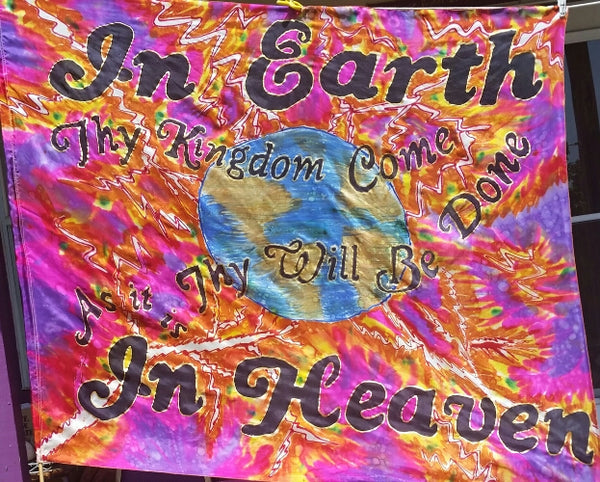 In Earth
Thy Kingdom Come
As it is Thy Will Be Done
In Heaven